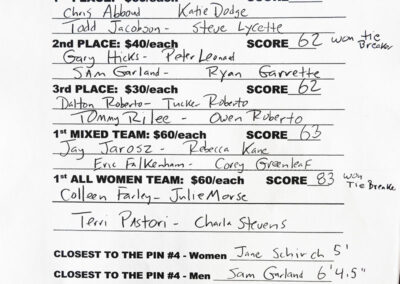 Chris Abboud Katie Dodge
Todd Jacobson - Steve Lycette
2nd PLACE: $40/each SCORE 62 won tie Breaker
Gary Hicks - Peter Leonard
SAm Garland - Ryan Garrette
3rd PLACE: $30/each SCORE 62
Dalton Roberto - Tucker Roberto
TOmmy RiLee - Owen Roberto
1st MIXED TEAM: $60/each SCORE 63
Jay Jarosz - Rebecca Kane
Eric Falkenham - Corey Greenleaf
1st ALL WOMEN TEAM: $60/each SCORE 83 won Tie Breaker
Colleen Farley - Julie Morse
Terri Pastori - Charla Stevens
CLOSEST TO THE PIN #4 - Women Jane Schirch 5'
CLOSEST TO THE PIN #4 - Men Sam Garland 6'4.5"